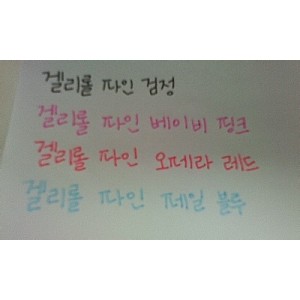 겔리롤 파인 검정
겔리롤 파인 베이비 핑크
겔리롤 파인 오페라 레드
겔리롤 파인 페일 블루